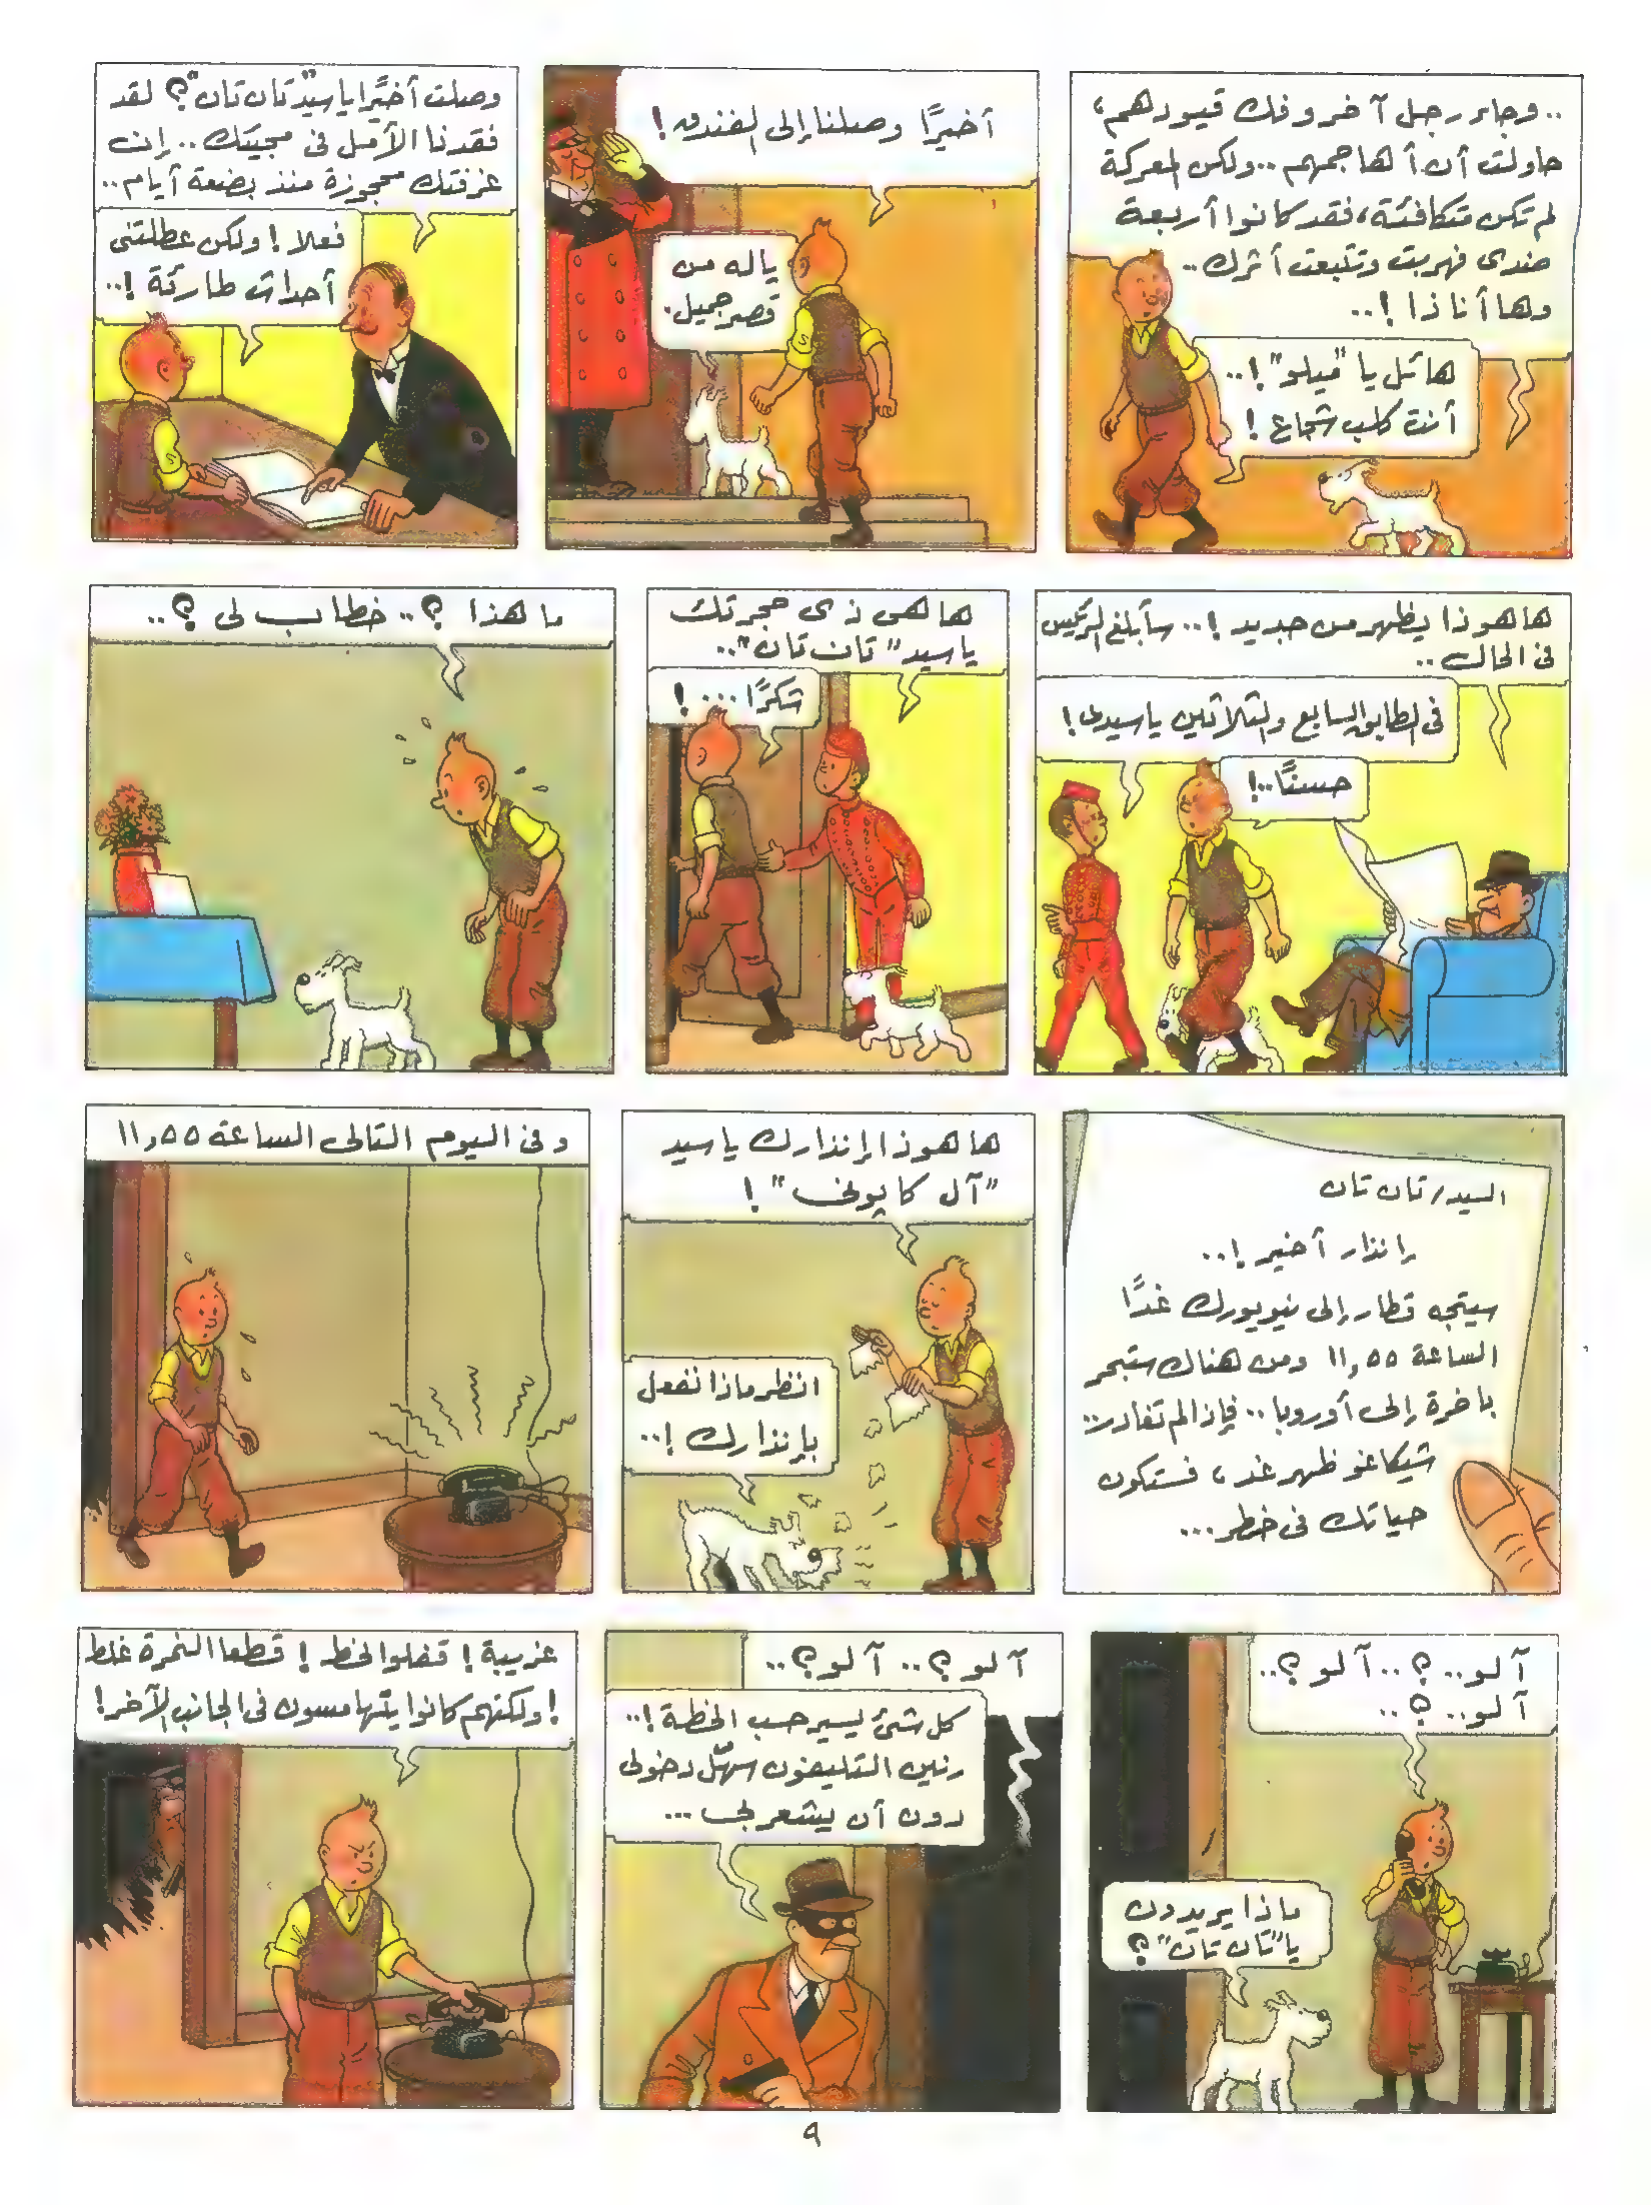 ..وجاء رجل آخر وفك قيودهم،
حاولت أن أهاجمهم..ولكن المعركة
لم تكن متكافئة، فقد كانوا أربعة
ضدى فهربت وتتبعت أثرك..
وها أنا ذا !..
هائل يا "ميلو"!..
أنت كلب شجاع !
أخيرًا وصلنا إلى الفندق !
ياله من
قصر جميل.
وصلت أخيرًا يا سيد "تان تان"؟ لقد
فقدنا الأمل فى مجيئك.. إن
غرفتك محجوزة منذ بضعة أيام..
فعلا ! ولكن عطلتنى
أحداث طارئة !..
ها هو ذا يظهر من جديد !.. سأبلغ الرئيس
فى الحال..
فى الطابق السابع والثلاثين يا سيدى !
حسنًا..!
ها هى ذى حجرتك
يا سيد "تان تان"..
شكرًا ...!
ما هذا ؟.. خطاب لى ؟..
السيد/ تان تان
إنذار أخير !..
سيتجه قطار إلى نيويورك غدًا
الساعة ١١,٥٥ ومن هناك ستبحر
باخرة إلى أوروبا.. فإذا لم تغادر..
شيكاغو ظهر غد، فستكون
حياتك فى خطر...
ها هو ذا إنذارك يا سيد
"آل كابونى" !
انظر ماذا نفعل
بإنذارك !..
وفى اليوم التالى الساعة ١١,٥٥
آلو..؟..آلو؟..
آلو..؟..
ماذا يريدون
يا "تان تان"؟
آلو ؟.. آلو؟..
كل شئ يسير حسب الخطة !..
رنين التليفون سهّل دخولى
دون أن يشعر بى...
غريبة ! قفلوا الخط ! قطعا النمرة غلط
! ولكنهم كانوا يتهامسون فى الجانب الآخر !
٩